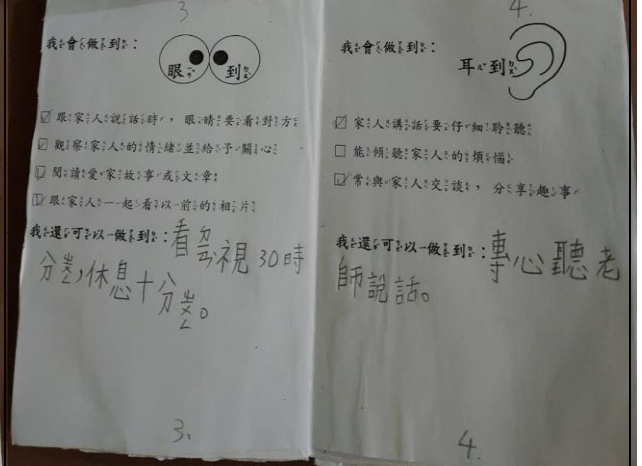 3
我會做到：
眼到
跟家人說話時，眼睛要看對方
觀察家人的情緒並給予關心
閱讀愛家故事或文章
跟家人一起看以前的相片
我還可以做到：看ㄉㄢˋ視30時
分差，休息十分差。
3.
4.
我會做到：
耳到
家人講話要仔細聆聽
能傾聽家人的煩惱
常與家人交談，分享趣事
我還可以做到：專心聽老
師說話。
4.